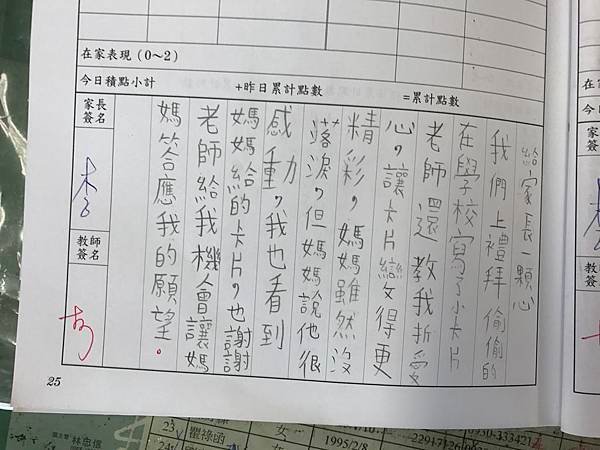 在家表現(0～2)
今日積點小計
+昨日累計點數
=累計點數
家長
簽名
教師
簽名
給家長一顆心
我們上禮拜偷偷的
在學校寫了小卡片
老師還教我折愛
心，讓卡片變得更
精彩，媽媽雖然沒
落淚，但媽媽說他很
感動，我也看到
媽媽給的卡片，也謝謝
老師給我機會讓媽
媽答應我的願望。
25
家長
簽
教
簽
林忠信
23
瞿祿函
女
1995/2/8
24